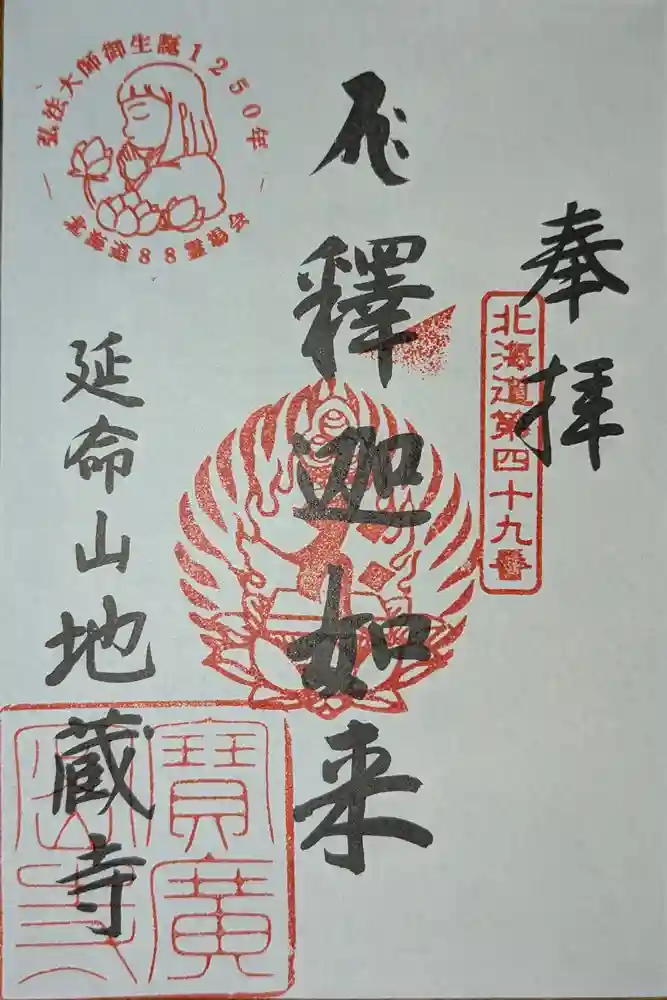 奉拝
北海道第四十九番
釋迦如来
延命山地蔵寺
弘法大師御生誕1250年
北海道八十八ヶ所88霊場会
寶廣
寺